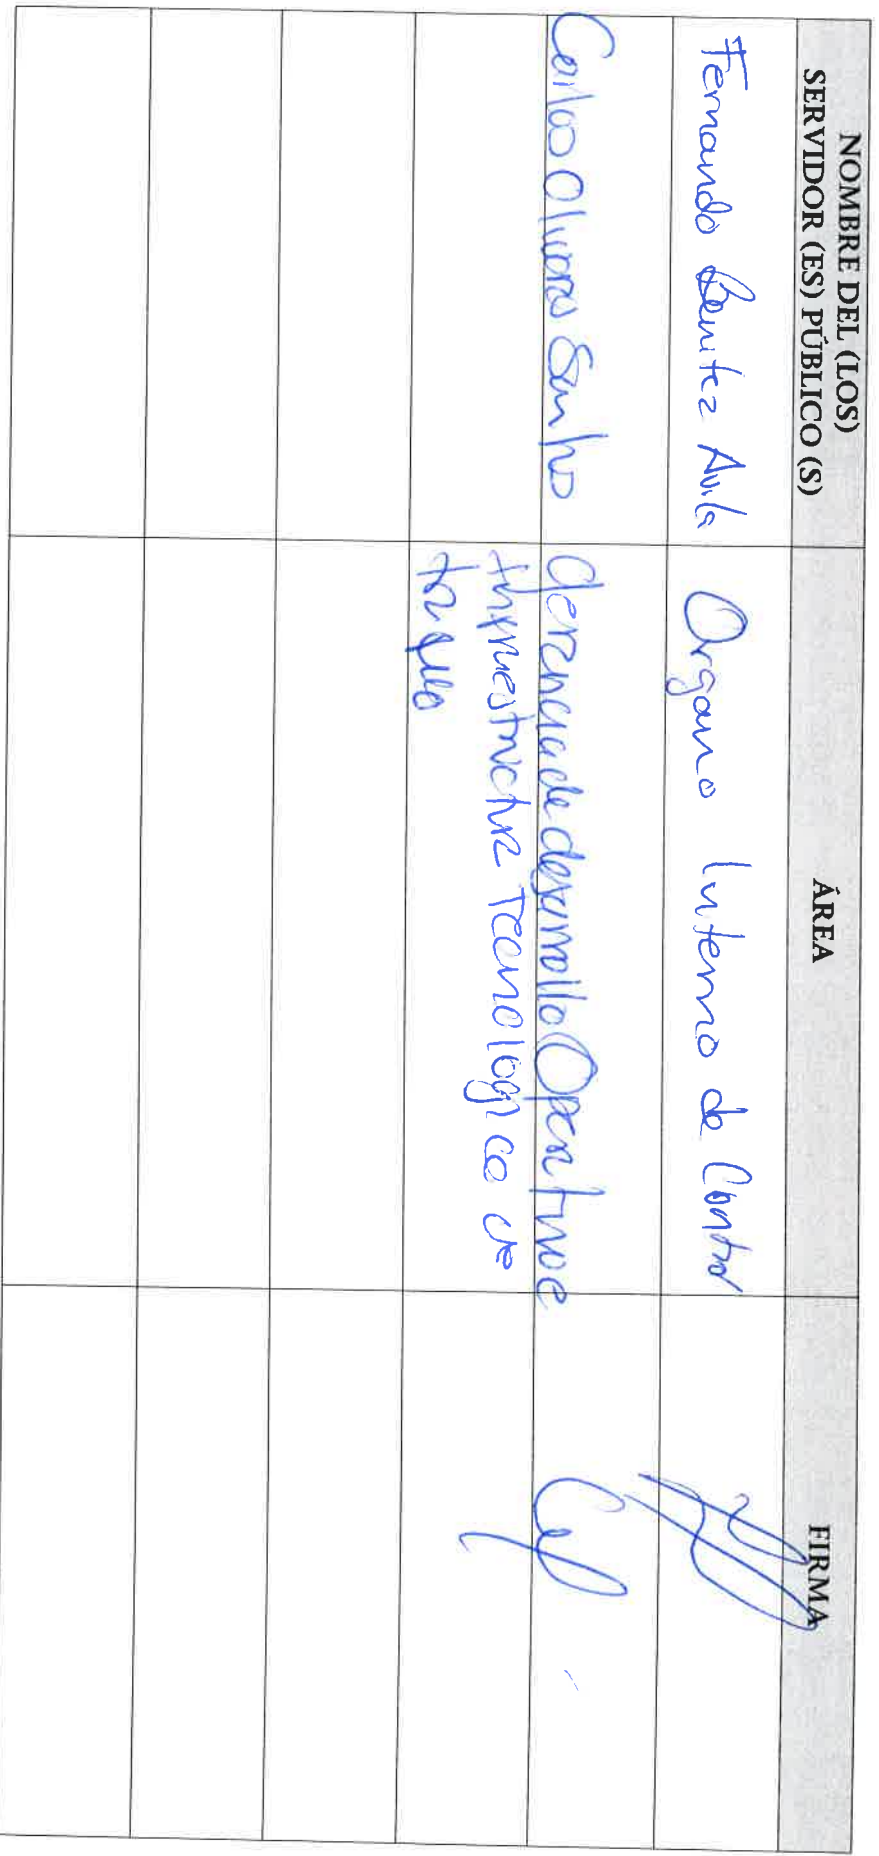 NOMBRE DEL (LOS)
SERVIDOR (ES) PÚBLICO (S)
ÁREA
FIRMA
Fernando Benitez Avila
Organo Interno de Control
Carlos Olivares
Gerencia de desarrollo Operativo e
Tecnologica de